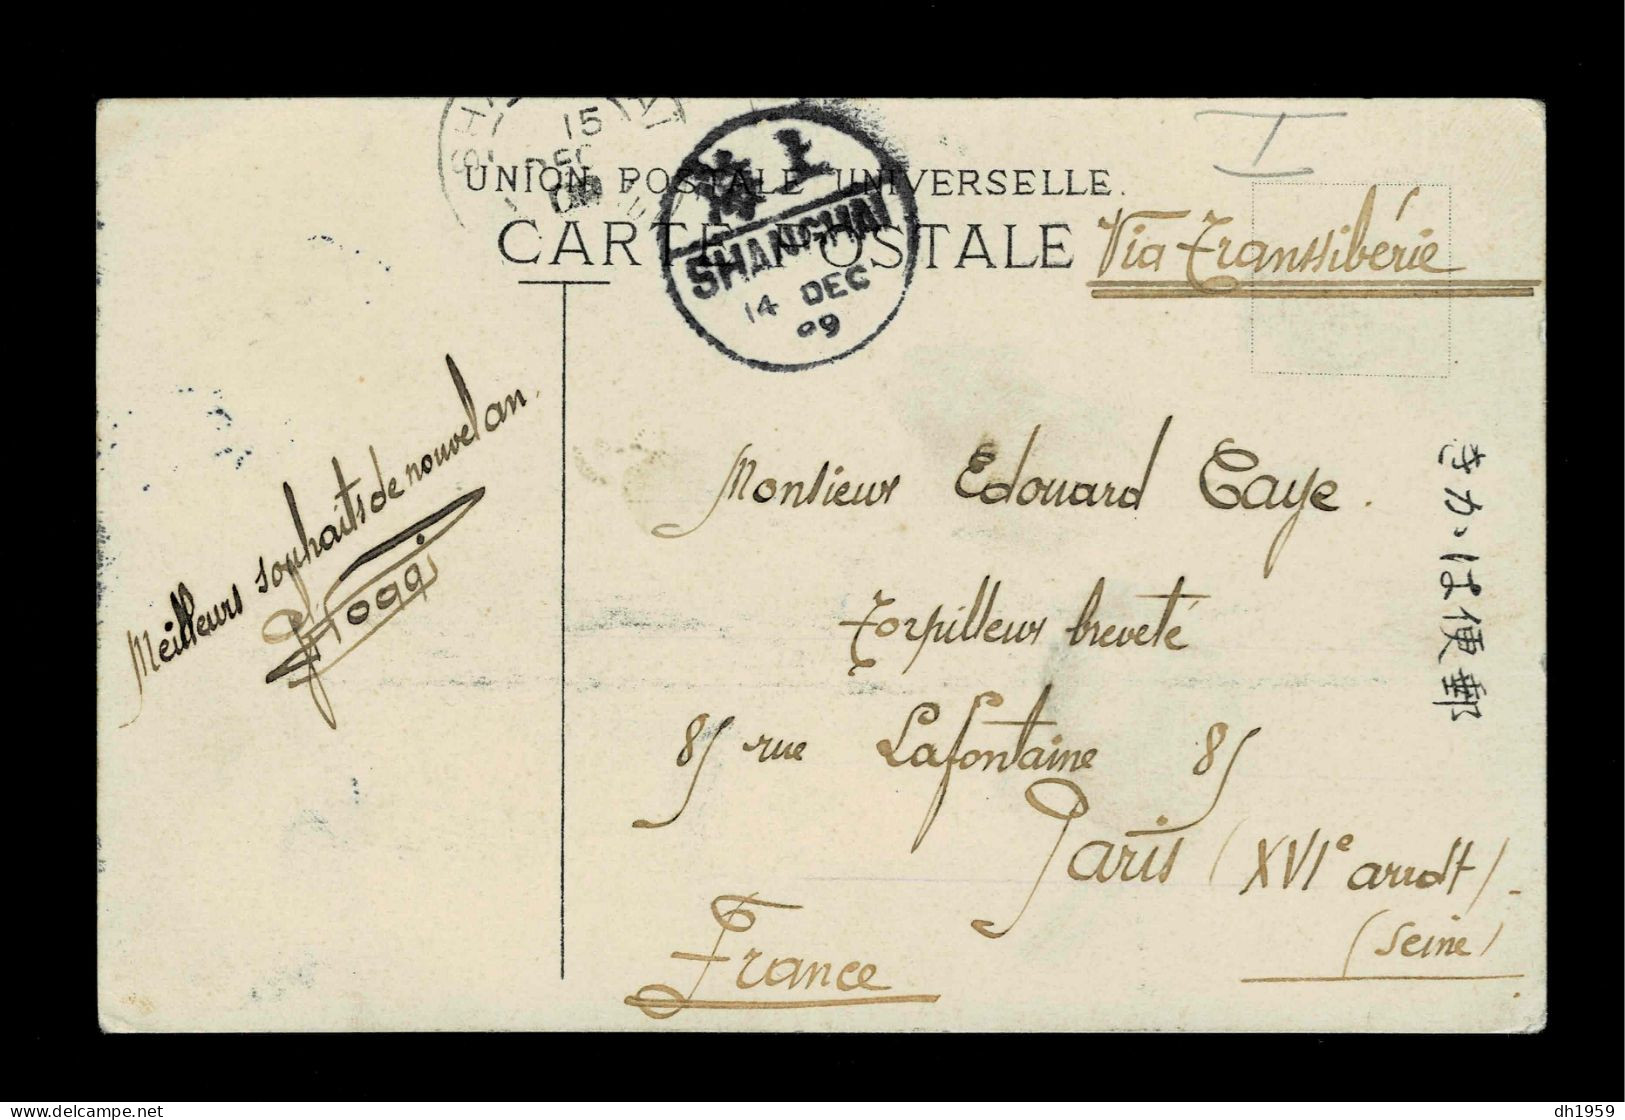 15
DEC
UNION POSTALE UNIVERSELLE.
CARTE POSTALE
海上
SHANGHAI
14 DEC
09
Via Transsibérie
Meilleurs souhaits de nouvel an.
Monsieur Edouard Caye.
Torpilleur breveté
85 rue Lafontaine 85
Paris (XVIe arrdt).
(Seine)
France
郵便はかき
dh1959